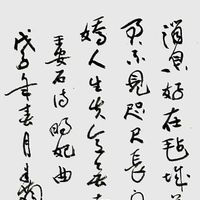 消息好在毡城莫
君不见咫尺长
娇人生失意无
安石诗明妃曲
戊子年春月